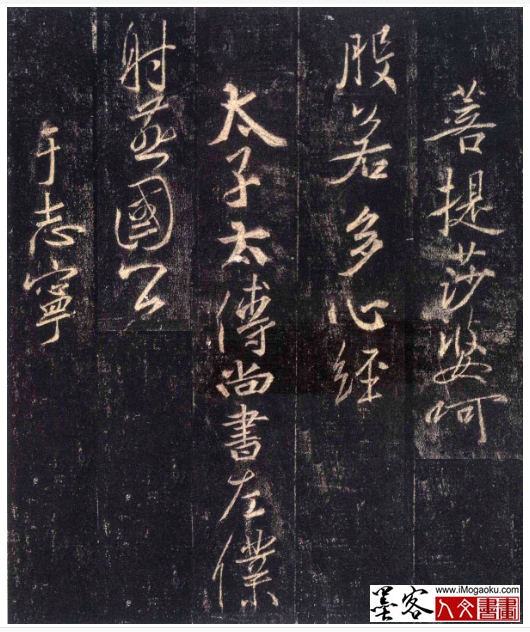 菩提莎婆呵
般若多心經
太子太傅尚書左僕
射燕國公
于志寧
墨客
www.iMogaoku.com
人文書畫